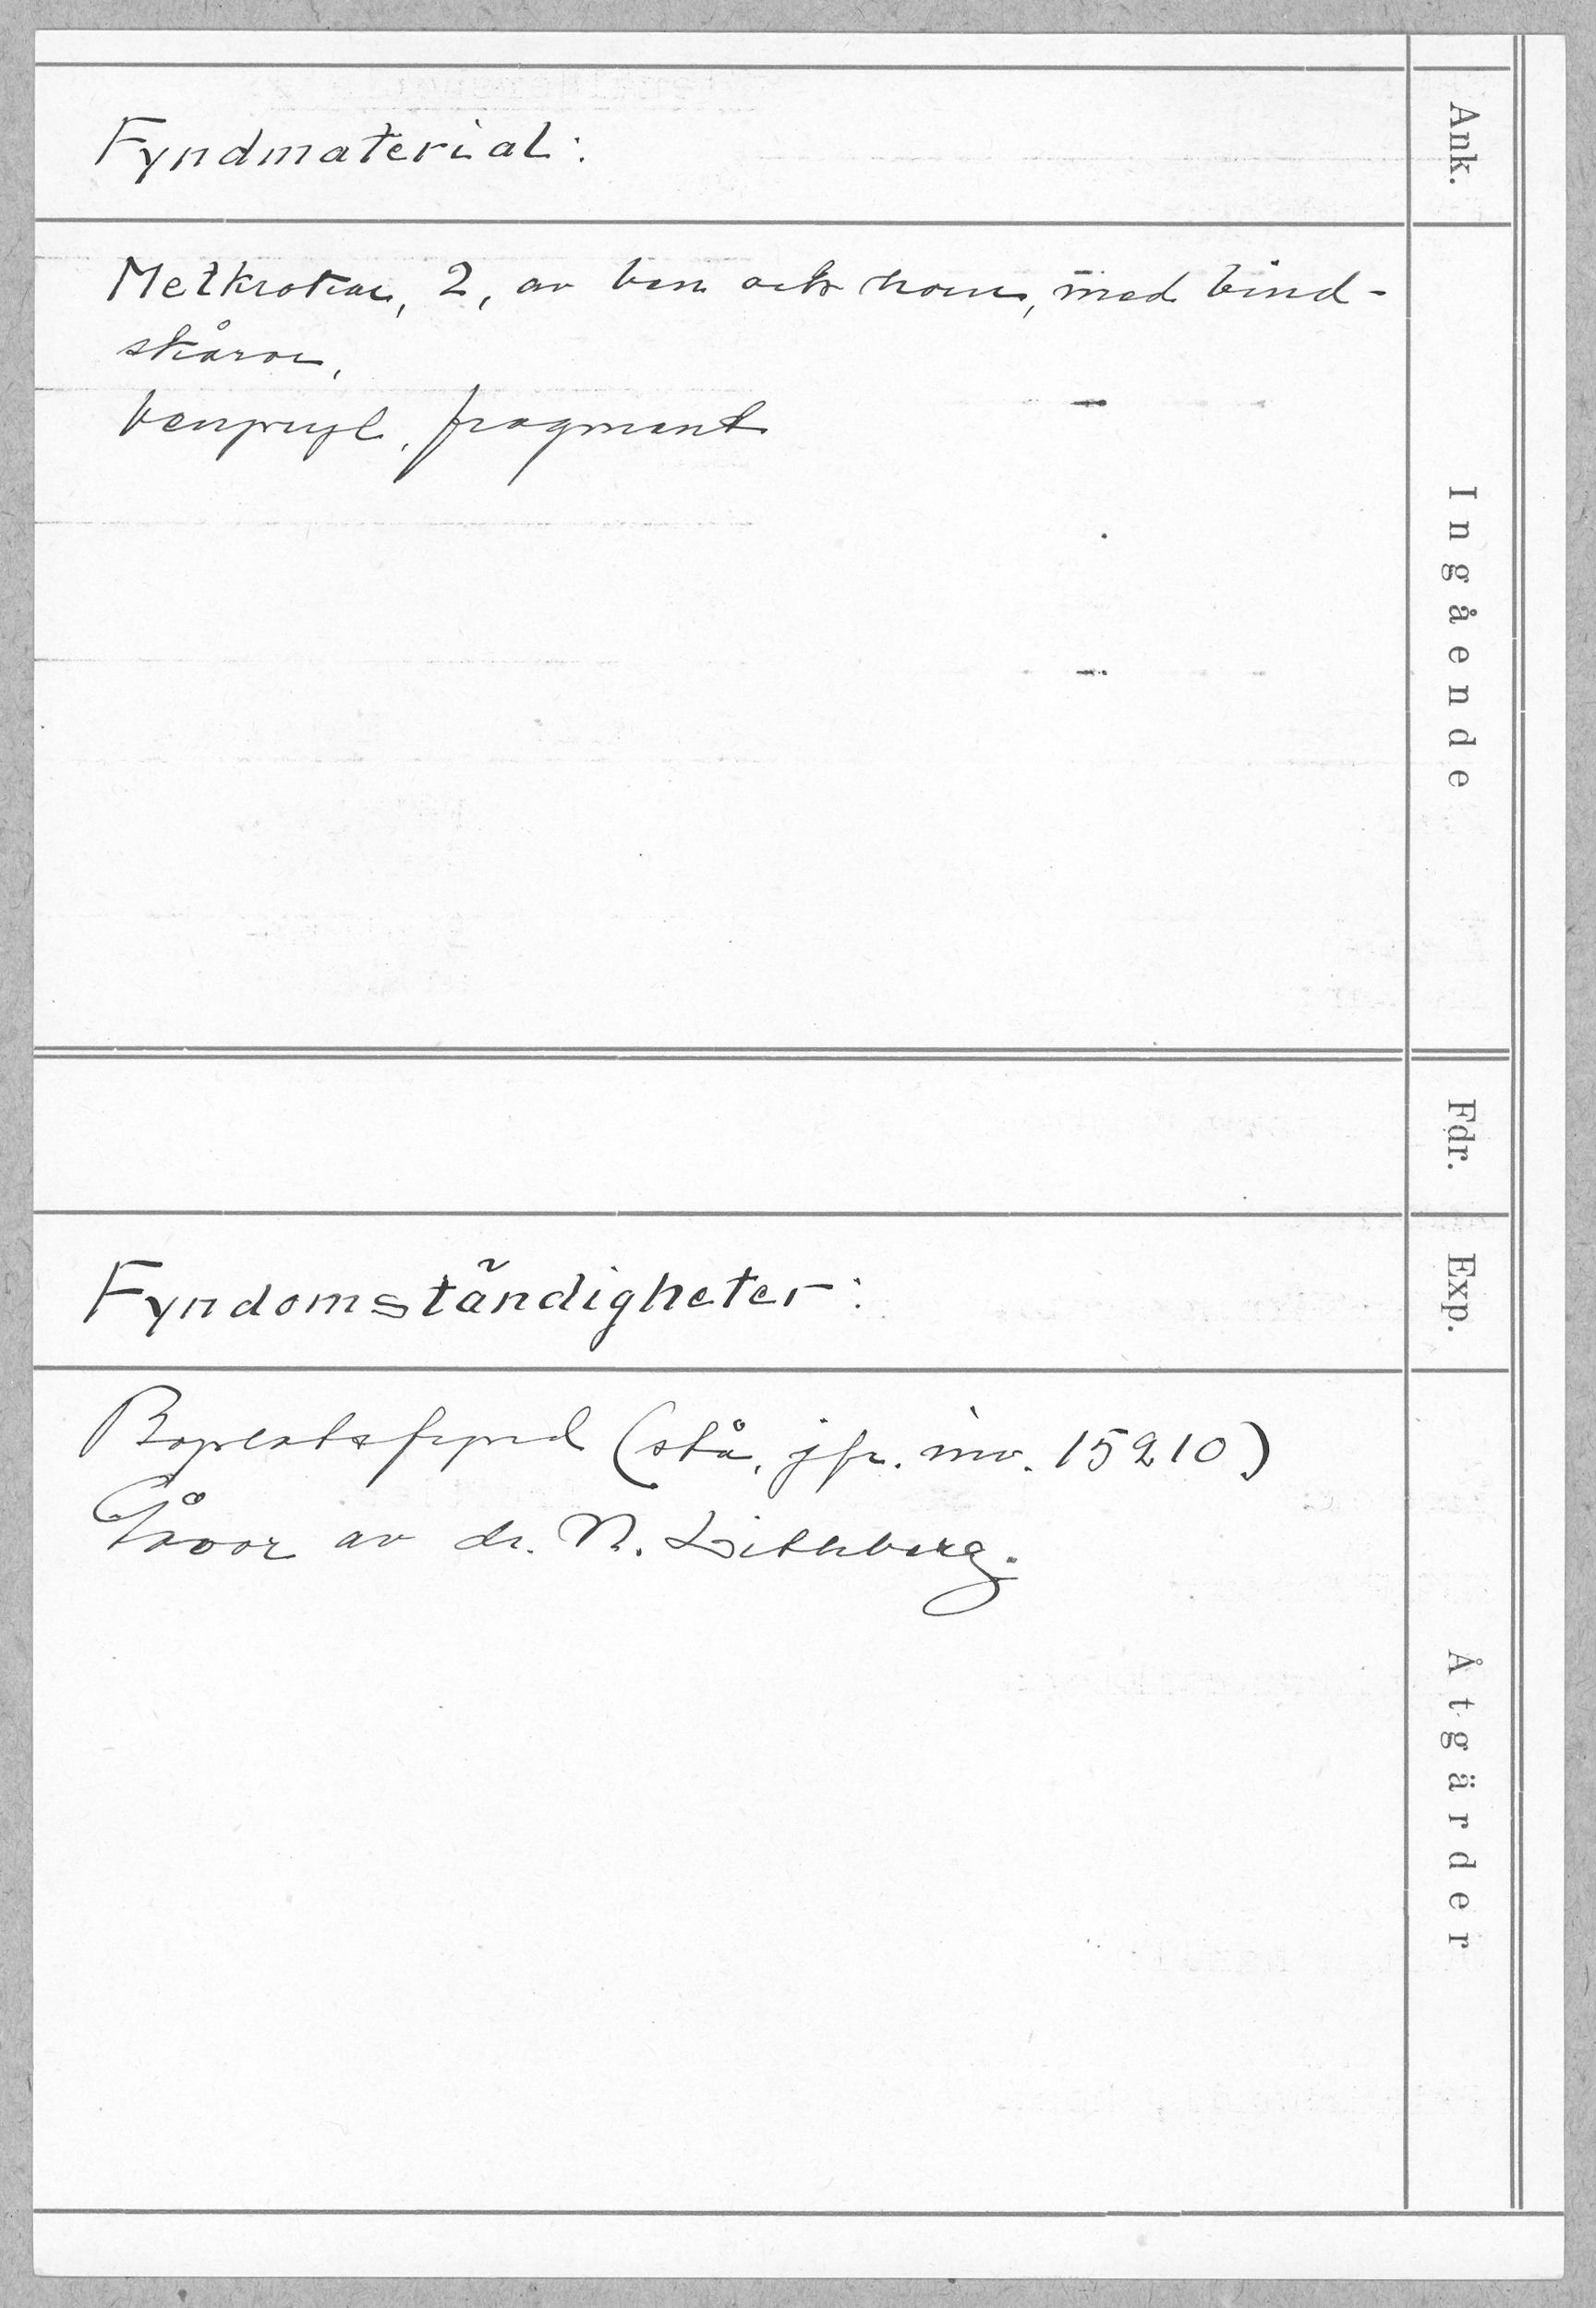 Fyndmaterial:
Metkrokar, 2, av ben och horn, med bind-
skåror,
benpryl, fragment
Fyndomständigheter:
Boplatsfynd (stå, jfr. inv. 15210)
Gåvor av dr. N. Lithberg.
Ank.
Ingående
Fdr.
Exp.
Åtgärder